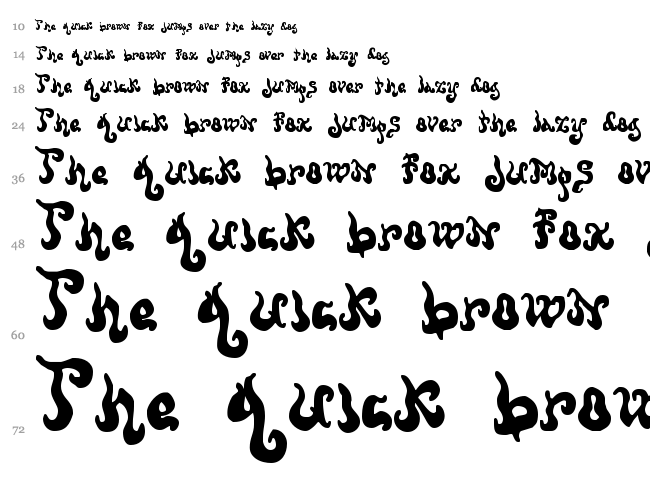 10 The quick brown fox jumps over the lazy dog
14 The quick brown fox jumps over the lazy dog
18 The quick brown fox jumps over the lazy dog
24 The quick brown fox jumps over the lazy dog
36 The quick brown fox jumps ov
48 The quick brown fox
60 The quick brown
72 The quick brow